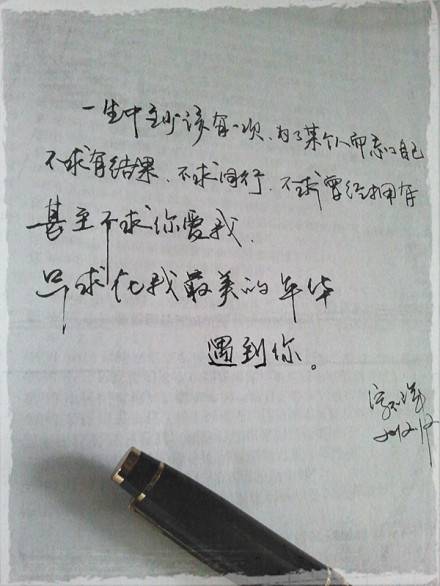 一生中至少该有一次、为了某个人而忘了自己
不求有结果、不求同行、不求曾经拥有
甚至不求你爱我、
只求在我最美的年华
遇到你。